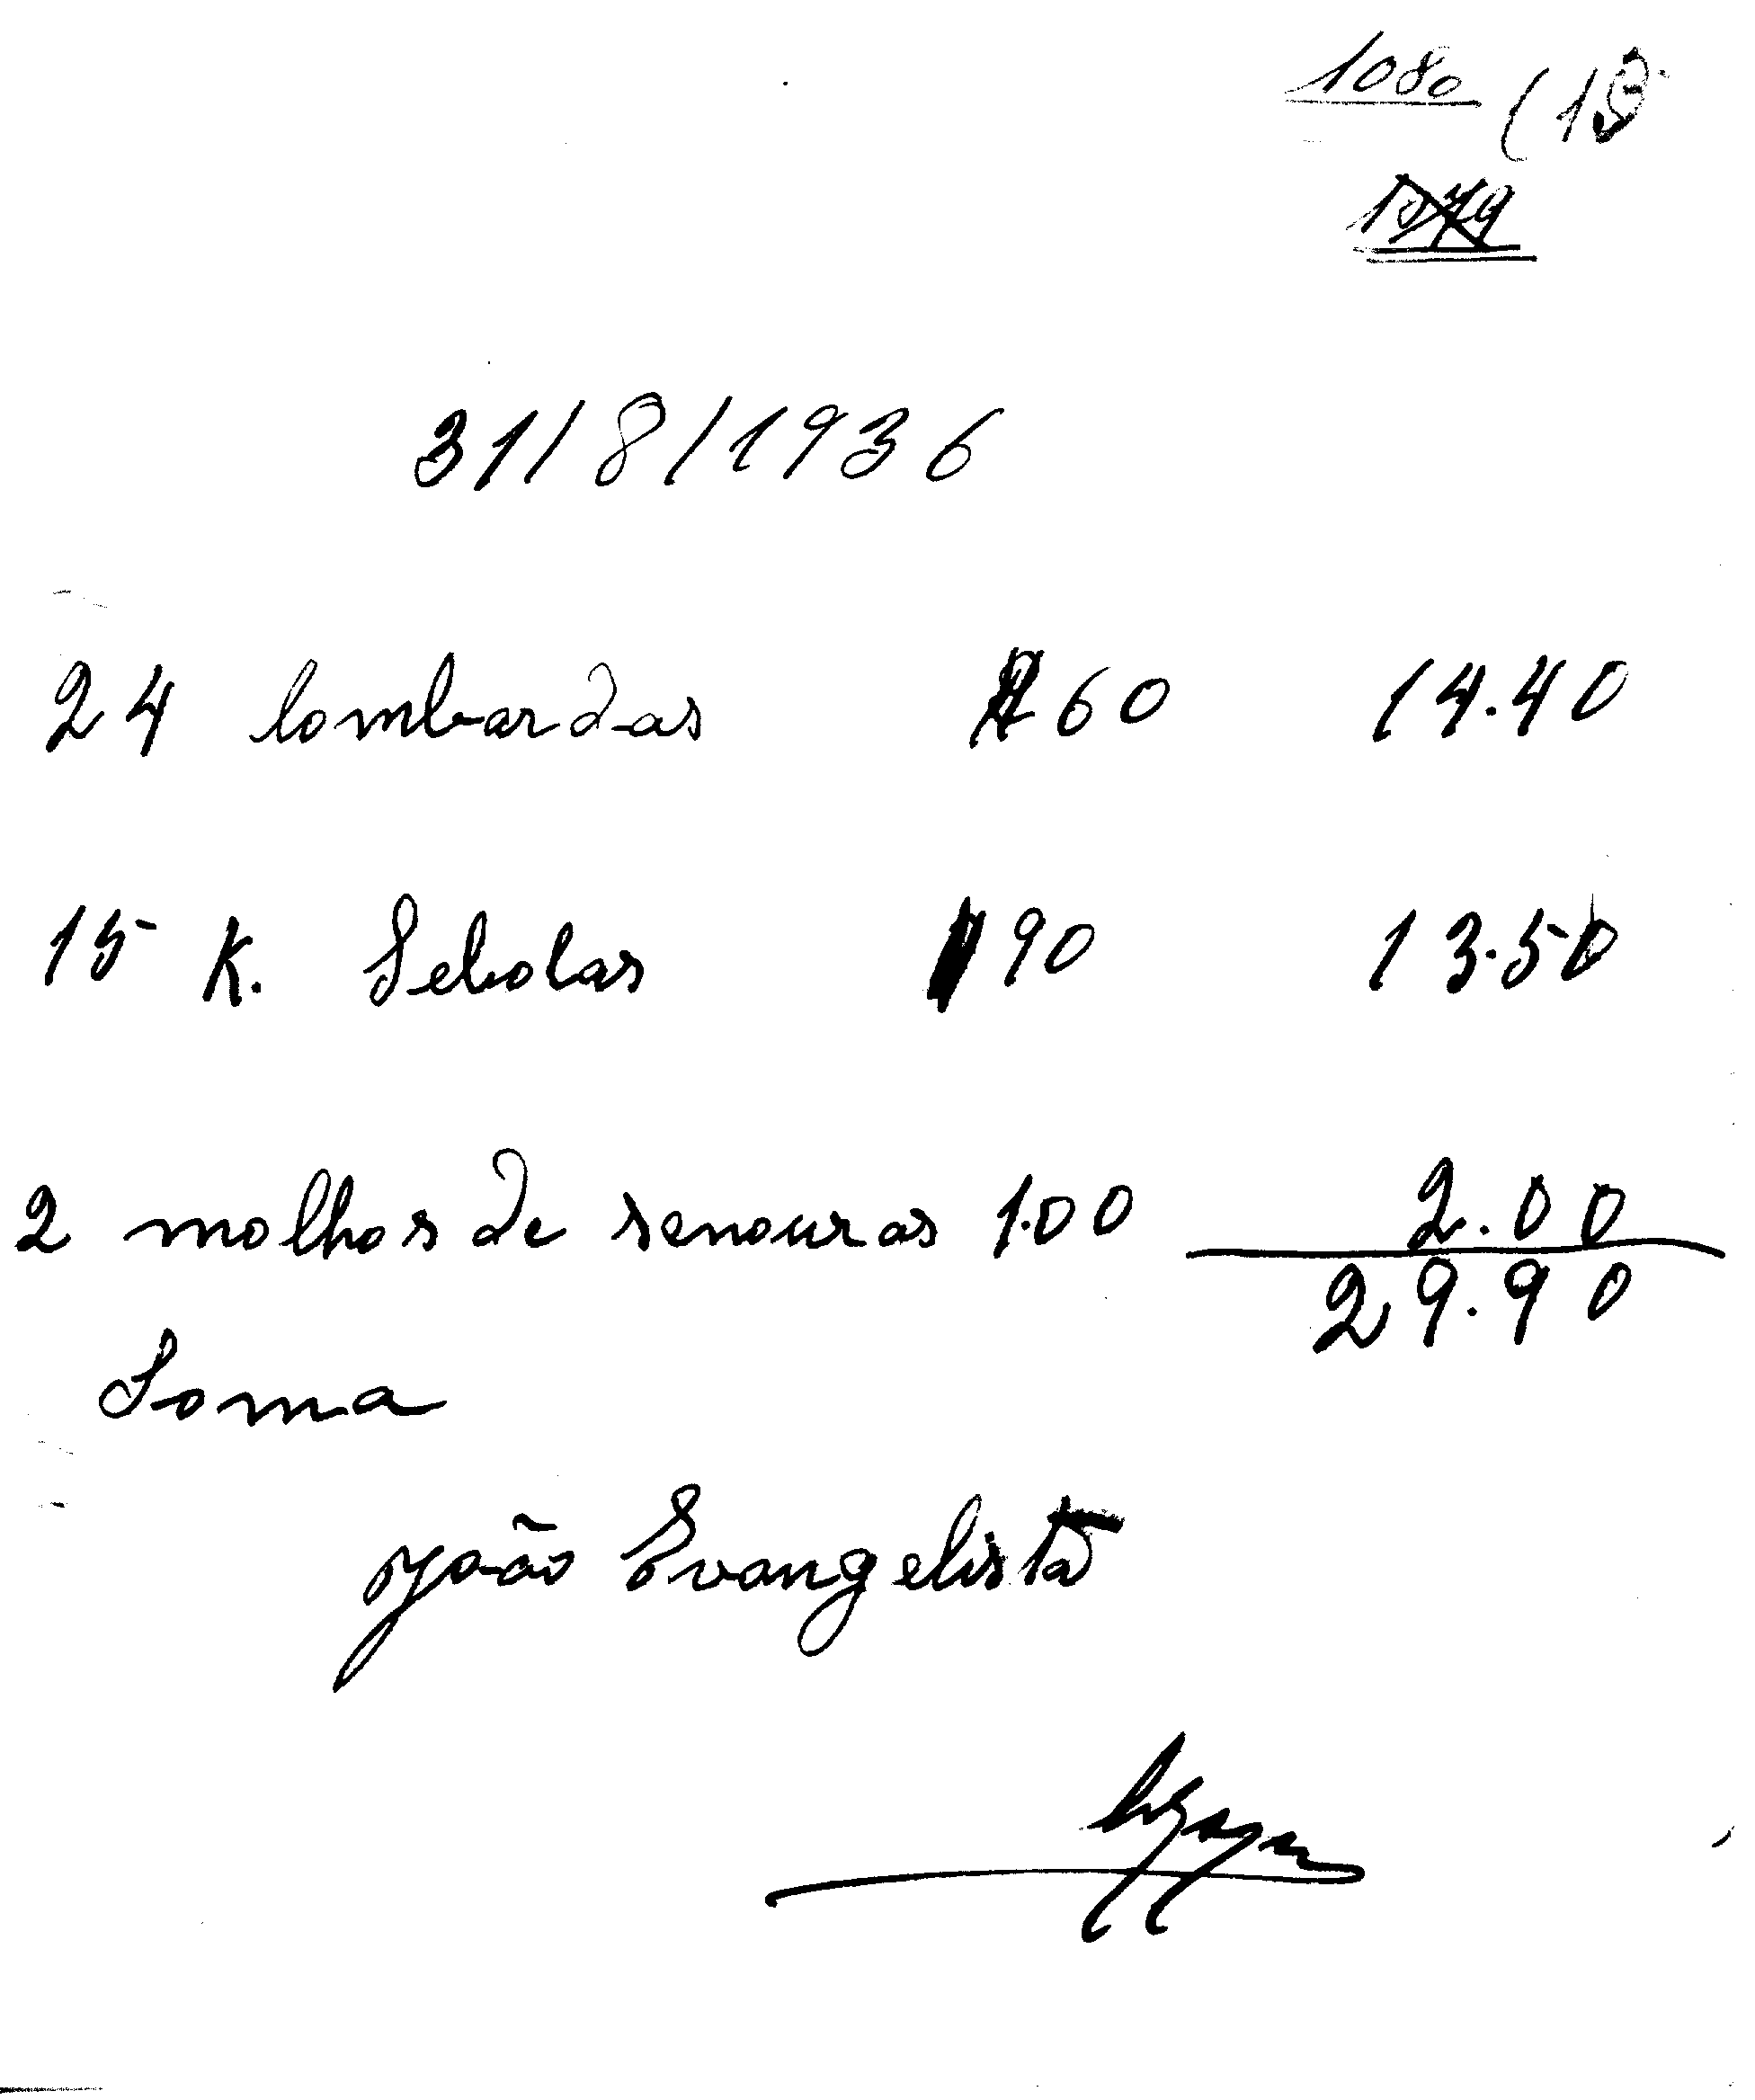 1080 (13
1079
31/8/1936
24 lombardas 60 14.40
15 K. Sebolas 90 13.50
2 molhos de senouras 1.00 2.00
29.90
Soma
João Evangelista